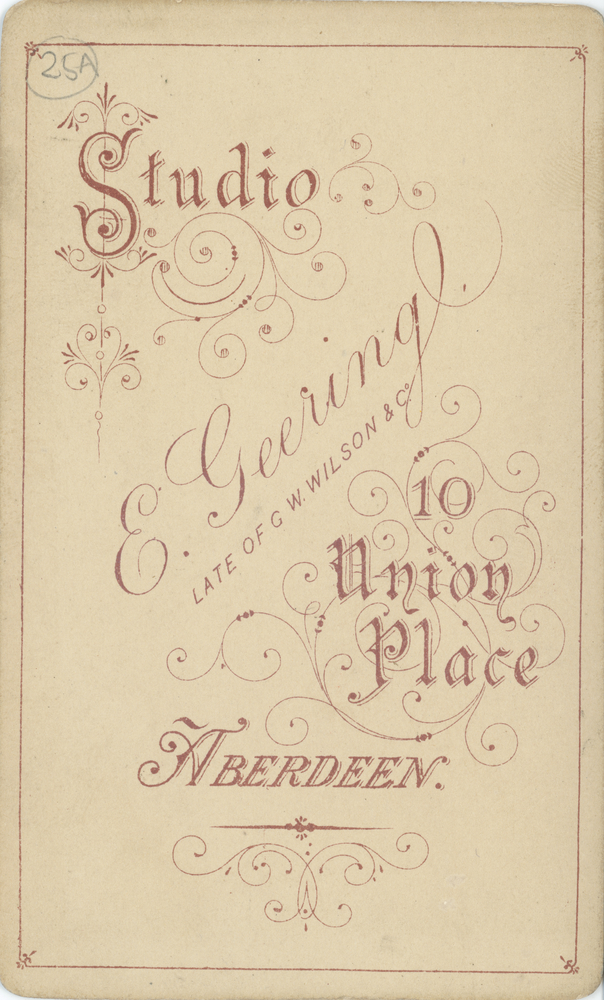 25A
Studio
E. Geering.
LATE OF G. W. WILSON & Co.
10
Union
Place
ABERDEEN.